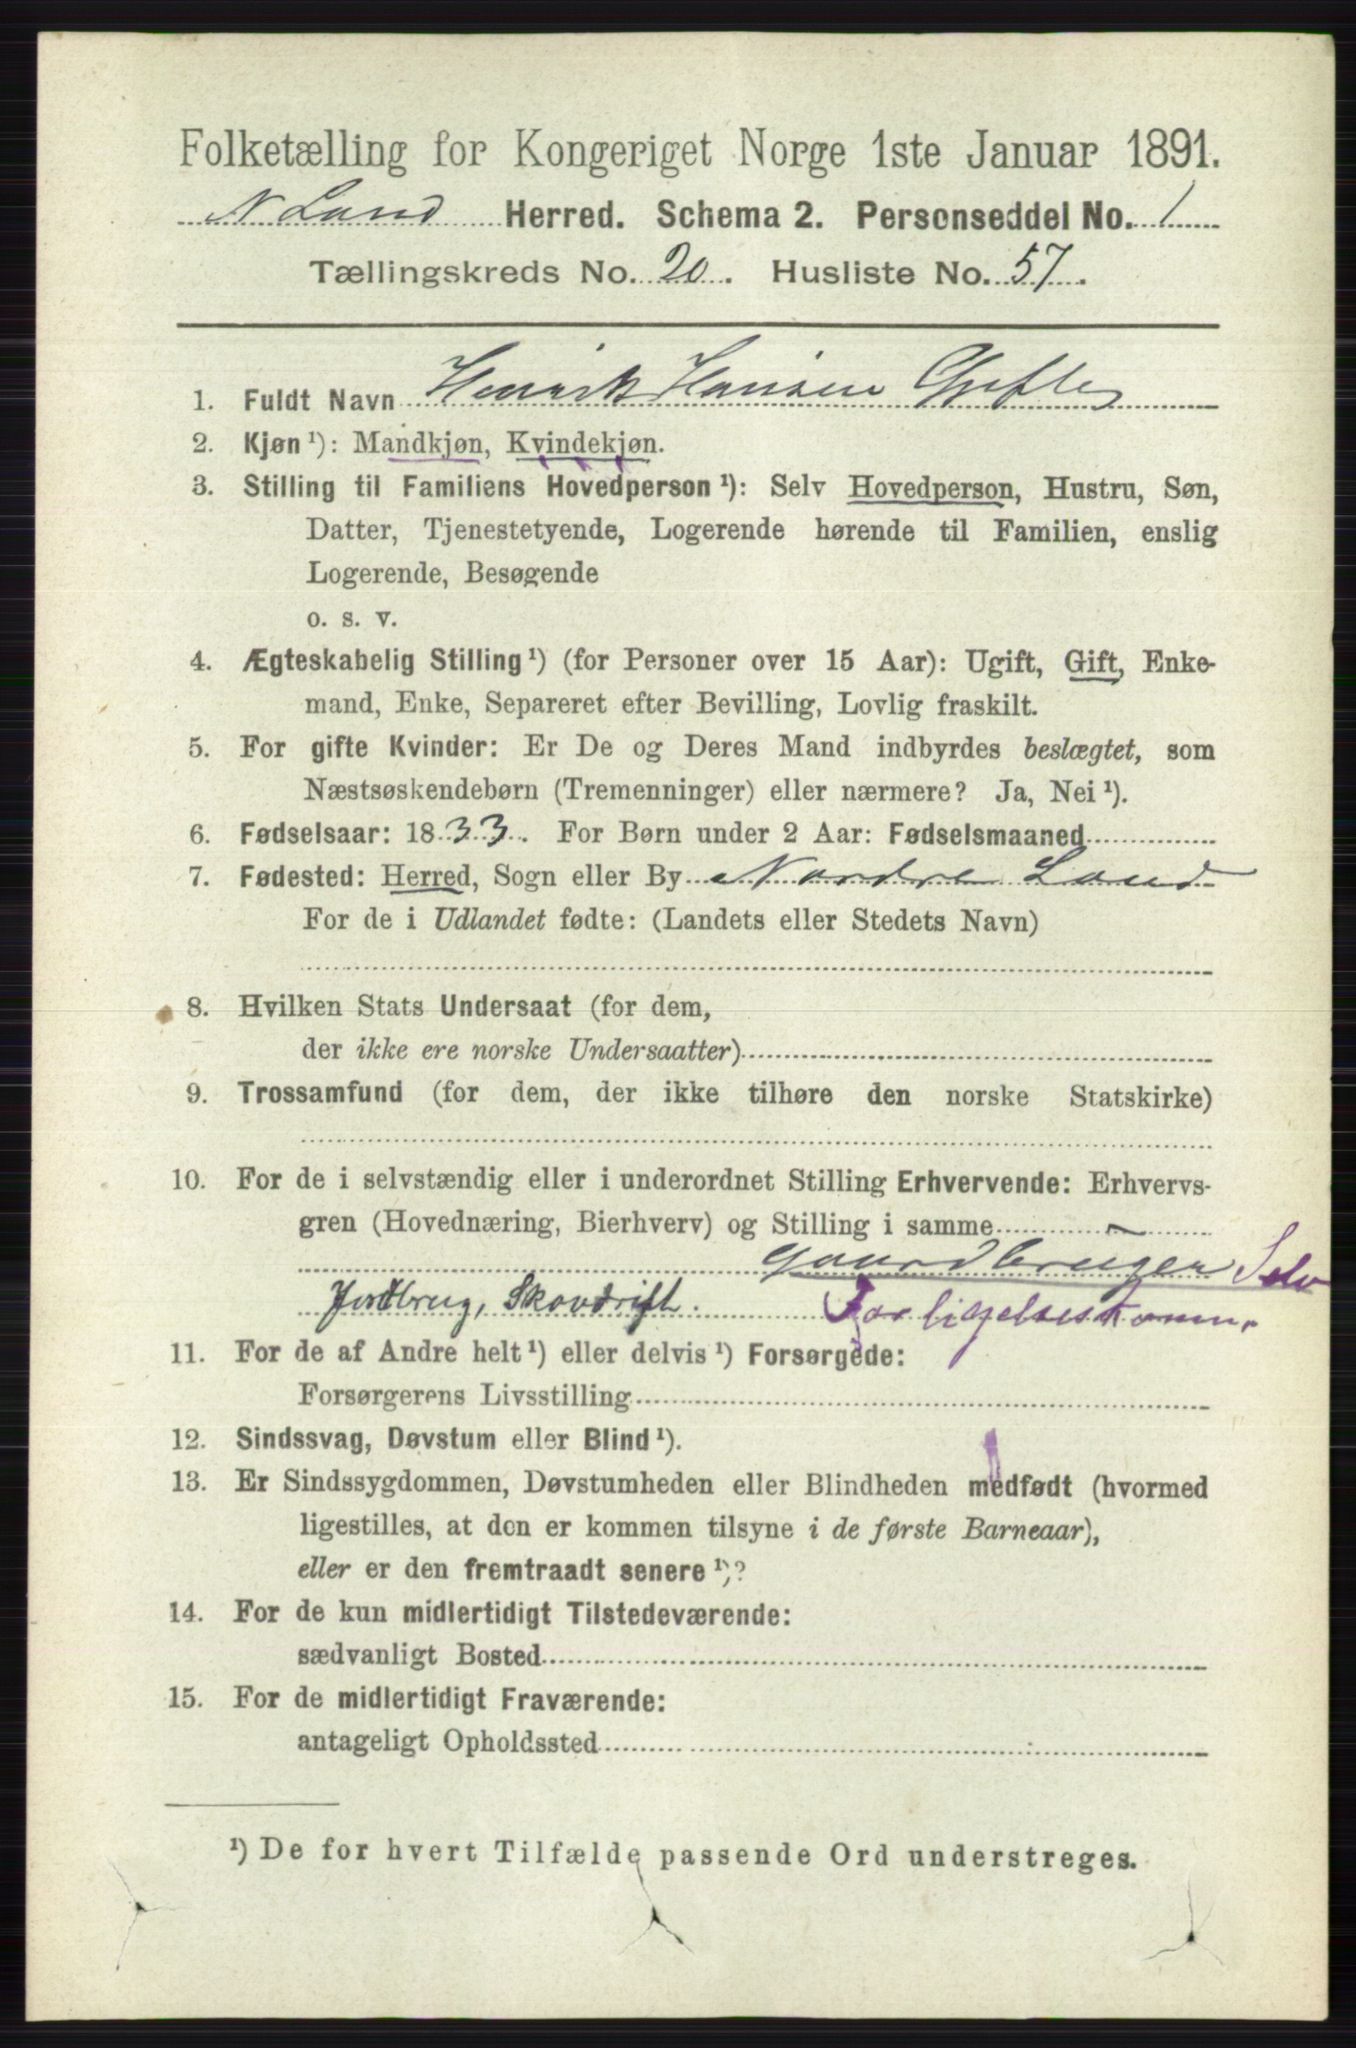 Folketælling for Kongeriget Norge 1ste Januar 1891.
N Land Herred. Schema 2. Personseddel No. 1
Tællingskreds No. 20. Husliste No. 57.
1. Fuldt Navn Henrik Hansen
2. Kjøn ¹): Mandkjøn, Kvindekjøn.
3. Stilling til Familiens Hovedperson ¹): Selv Hovedperson, Hustru, Søn,
Datter, Tjenestetyende, Logerende hørende til Familien, enslig
Logerende, Besøgende
o. s. v.
4. Ægteskabelig Stilling ¹) (for Personer over 15 Aar): Ugift, Gift, Enke-
mand, Enke, Separeret efter Bevilling, Lovlig fraskilt.
5. For gifte Kvinder: Er De og Deres Mand indbyrdes beslægtet, som
Næstsøskendebørn (Tremenninger) eller nærmere? Ja, Nei ¹).
6. Fødselsaar: 1833. For Børn under 2 Aar: Fødselsmaaned
7. Fødested: Herred, Sogn eller By Nordre Land
For de i Udlandet fødte: (Landets eller Stedets Navn)
8. Hvilken Stats Undersaat (for dem,
der ikke ere norske Undersaatter)
9. Trossamfund (for dem, der ikke tilhøre den norske Statskirke)
10. For de i selvstændig eller i underordnet Stilling Erhvervende: Erhvervs-
gren (Hovednæring, Bierhverv) og Stilling i samme
Gaardbruger Selv
Jordbrug, Skovdrift. Forligelseskomm.
11. For de af Andre helt ¹) eller delvis ¹) Forsørgede:
Forsørgerens Livsstilling
12. Sindssvag, Døvstum eller Blind ¹).
13. Er Sindssygdommen, Døvstumheden eller Blindheden medfødt (hvormed
ligestilles, at den er kommen tilsyne i de første Barneaar),
eller er den fremtraadt senere ¹)?
14. For de kun midlertidigt Tilstedeværende:
sædvanligt Bosted
15. For de midlertidigt Fraværende:
antageligt Opholdssted
¹) De for hvert Tilfælde passende Ord understreges.